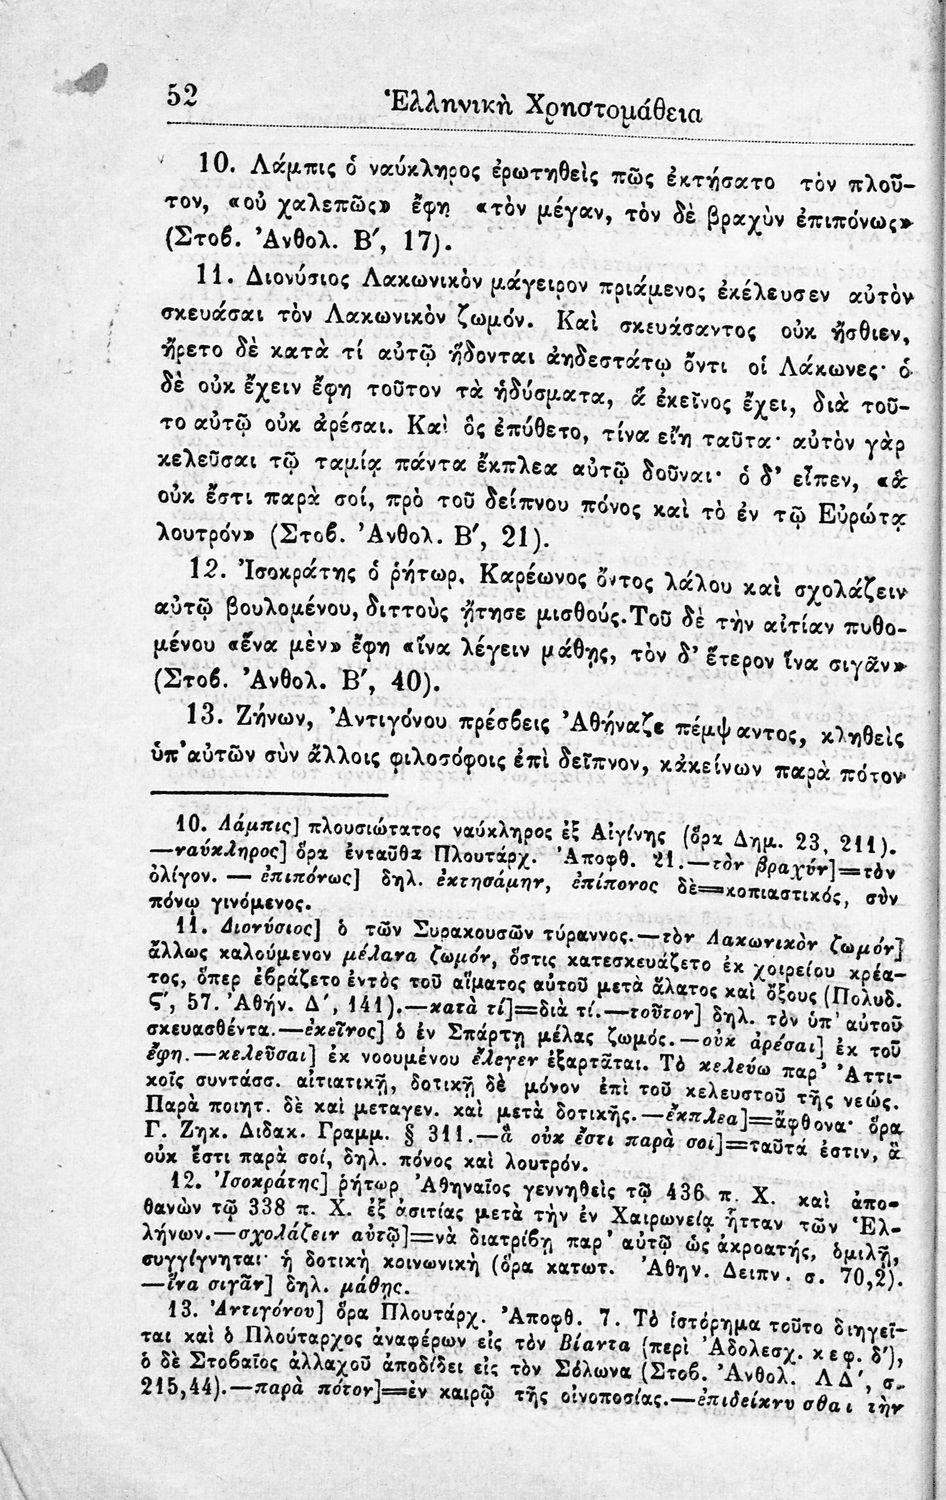 52
Ἑλληνικὴ Χρηστομάθεια
10. Λάμπις ὁ ναύκληρος ἐρωτηθεὶς πῶς ἐκτήσατο τὸν πλοῦ-
τον, «οὐ χαλεπῶς» ἔφη «τὸν μέγαν, τὸν δὲ βραχὺν ἐπιπόνως»
(Στοβ. Ἀνθολ. Β′, 17).
11. Διονύσιος Λακωνικὸν μάγειρον πριάμενος ἐκέλευσεν αὐτὸν
σκευάσαι τὸν Λακωνικὸν ζωμόν. Καὶ σκευάσαντος οὐκ ἤσθιεν,
ἤρετο δὲ κατὰ τί αὐτῷ ἥδονται ἀηδεστάτῳ ὄντι οἱ Λάκωνες· ὁ
δὲ οὐκ ἔχειν ἔφη τοῦτον τὰ ἡδύσματα, ἃ ἐκεῖνος ἔχει, διὰ τοῦ-
το αὐτῷ οὐκ ἀρέσαι. Καὶ ὃς ἐπύθετο, τίνα εἴη ταῦτα· αὐτὸν γὰρ
κελεῦσαι τῷ ταμίᾳ πάντα ἔκπλεα αὐτῷ δοῦναι· ὁ δ' εἶπεν, «ἃ
οὐκ ἔστι παρὰ σοί, πρὸ τοῦ δείπνου πόνος καὶ τὸ ἐν τῷ Εὐρώτᾳ
λουτρόν» (Στοβ. Ἀνθολ. Β′, 21).
12. Ἰσοκράτης ὁ ῥήτωρ, Καρέωνος ὄντος λάλου καὶ σχολάζειν
αὐτῷ βουλομένου, διττοὺς ᾔτησε μισθούς. Τοῦ δὲ τὴν αἰτίαν πυθο-
μένου «ἕνα μὲν» ἔφη «ἵνα λέγειν μάθῃς, τὸν δ' ἕτερον ἵνα σιγᾶν»
(Στοβ. Ἀνθολ. Β′, 40).
13. Ζήνων, Ἀντιγόνου πρέσβεις Ἀθήναζε πέμψαντος, κληθεὶς
ὑπ' αὐτῶν σὺν ἄλλοις φιλοσόφοις ἐπὶ δεῖπνον, κἀκείνων παρὰ πότον
10. Λάμπις] πλουσιώτατος ναύκληρος ἐξ Αἰγίνης (ὅρα Δημ. 23, 211).
—ναύκληρος] ὅρα ἐνταῦθα Πλουτάρχ. Ἀποφθ. 21.—τὸν βραχὺν]=τὸν
ὀλίγον. — ἐπιπόνως] δηλ. ἐκτησάμην, ἐπίπονος δὲ=κοπιαστικός, σὺν
πόνῳ γινόμενος.
11. Διονύσιος] ὁ τῶν Συρακουσῶν τύραννος.—τὸν Λακωνικὸν ζωμόν]
ἄλλως καλούμενον μέλανα ζωμόν, ὅστις κατεσκευάζετο ἐκ χοιρείου κρέα-
τος, ὅπερ ἐβράζετο ἐντὸς τοῦ αἵματος αὐτοῦ μετὰ ἅλατος καὶ ὄξους (Πολυδ.
Ϛ′, 57. Ἀθήν. Δ′, 141).—κατὰ τί]=διὰ τί.—τοῦτον] δηλ. τὸν ὑπ' αὐτοῦ
σκευασθέντα.—ἐκεῖνος] ὁ ἐν Σπάρτῃ μέλας ζωμός.—οὐκ ἀρέσαι] ἐκ τοῦ
ἔφη.—κελεῦσαι] ἐκ νοουμένου ἔλεγεν ἐξαρτᾶται. Τὸ κελεύω παρ' Ἀττι-
κοῖς συντάσσ. αἰτιατικῇ, δοτικῇ δὲ μόνον ἐπὶ τοῦ κελευστοῦ τῆς νεώς.
Παρὰ ποιητ. δὲ καὶ μεταγεν. καὶ μετὰ δοτικῆς.—ἔκπλεα]=ἄφθονα· ὅρα
Γ. Ζηκ. Διδακ. Γραμμ. § 311.—ἃ οὐκ ἔστι παρὰ σοι]=ταῦτά ἐστιν, ἃ
οὐκ ἔστι παρὰ σοί, δηλ. πόνος καὶ λουτρόν.
12. Ἰσοκράτης] ῥήτωρ Ἀθηναῖος γεννηθεὶς τῷ 436 π. Χ. καὶ ἀπο-
θανὼν τῷ 338 π. Χ. ἐξ ἀσιτίας μετὰ τὴν ἐν Χαιρωνείᾳ ἧτταν τῶν Ἑλ-
λήνων.—σχολάζειν αὐτῷ]=νὰ διατρίβῃ παρ' αὐτῷ ὡς ἀκροατής, ὁμιλῇ,
συγγίγνηται· ἡ δοτικὴ κοινωνικὴ (ὅρα κατωτ. Ἀθην. Δειπν. σ. 70,2).
—ἵνα σιγᾶν] δηλ. μάθῃς.
13. Ἀντιγόνου] ὅρα Πλουτάρχ. Ἀποφθ. 7. Τὸ ἱστόρημα τοῦτο διηγεῖ-
ται καὶ ὁ Πλούταρχος ἀναφέρων εἰς τὸν Βίαντα (περὶ Ἀδολεσχ. κεφ. δ′),
ὁ δὲ Στοβαῖος ἀλλαχοῦ ἀποδίδει εἰς τὸν Σόλωνα (Στοβ. Ἀνθολ. ΛΔ′, σ.
215,44).—παρὰ πότον]=ἐν καιρῷ τῆς οἰνοποσίας.—ἐπιδείκνυσθαι τὴν